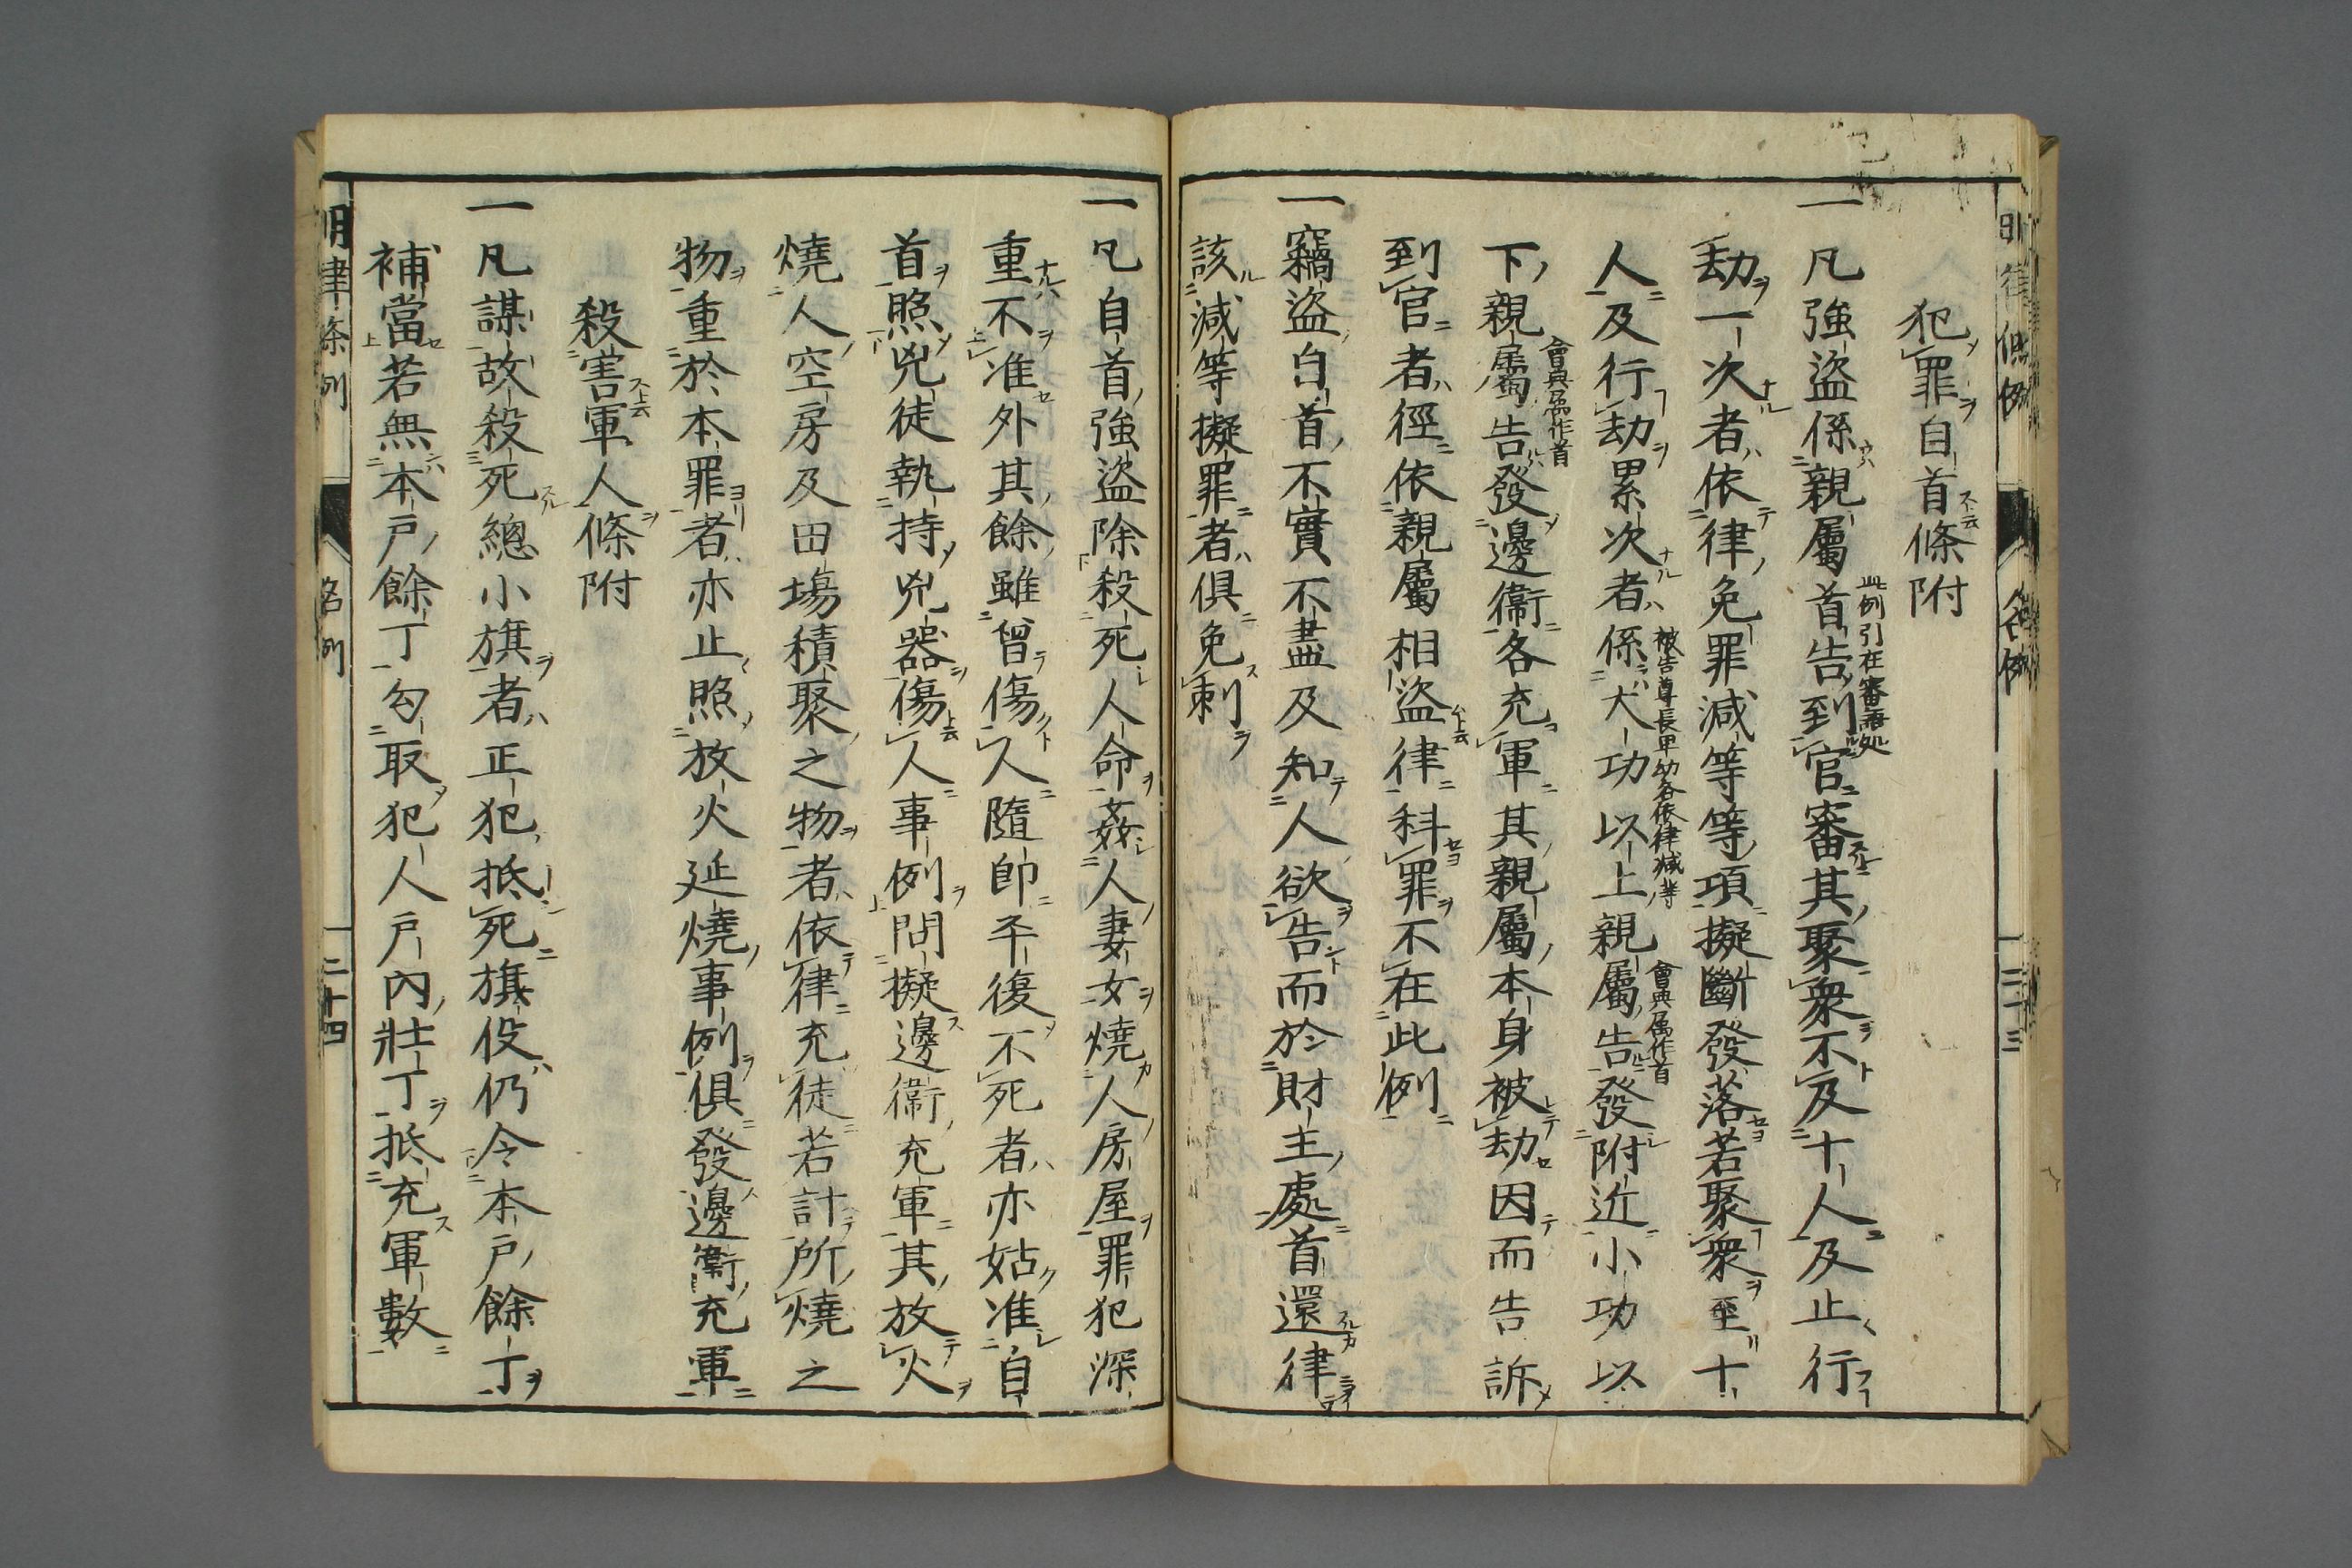 犯罪自首條附
一凡強盜係親屬首告到官審其聚衆不及十人及止行
此例引在審語処
劫一次者依律免罪減等等項擬斷發落若聚衆至十
人及行劫累次者係大功以上親屬告發附近小功以
被告尊長卑幼各依律減等
會典属作首
下親屬告發邊衞各充軍其親屬本身被劫因而告訴
會典属作首
到官者徑依親屬相盜律科罪不在此例
一竊盜自首不實不盡及知人欲告而於財主處首還律
該減等擬罪者俱免刺
一凡自首強盜除殺死人命姦人妻女燒人房屋罪犯深
重不准外其餘雖曾傷人隨即平復不死者亦姑准自
首照兇徒執持兇器傷人事例問擬邊衞充軍其放火
燒人空房及田場積聚之物者依律充徒若計所燒之
物重於本罪者亦止照放火延燒事例俱發邊衞充軍
殺害軍人條附
一凡謀故殺死總小旗者正犯抵死旗役仍令本戶餘丁
補當若無本戶餘丁勾取犯人戶內壯丁抵充軍數
明律條例
名例
二十四